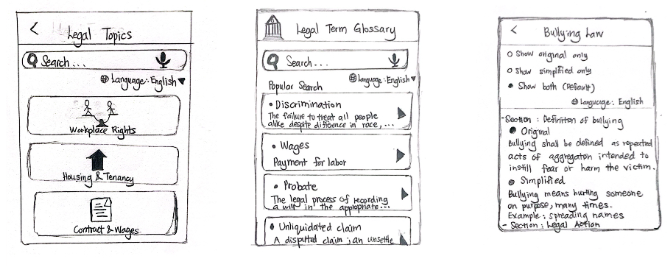 Legal Topics
Search...
Language: English
Workplace Rights
Housing & Tenancy
Contract & Wages
Legal Term Glossary
Search...
Language: English
Popular Search
Discrimination
The failure to treat all people
alike despite difference in race, ...
Wages
Payment for labor
Probate
The legal process of recording
a will in the appropriate...
Unliquidated claim
A disputed claim; an unsettle
Bullying Law
Show original only
Show simplified only
Show both (Default)
Language: English
- Section: Definition of bullying
Original
Bullying shall be defined as repeated
acts of aggregation intended to
instill fear or harm the victim.
Simplified
Bullying means hurting someone
on purpose, many times.
Example: spreading names
- Section: Legal Action